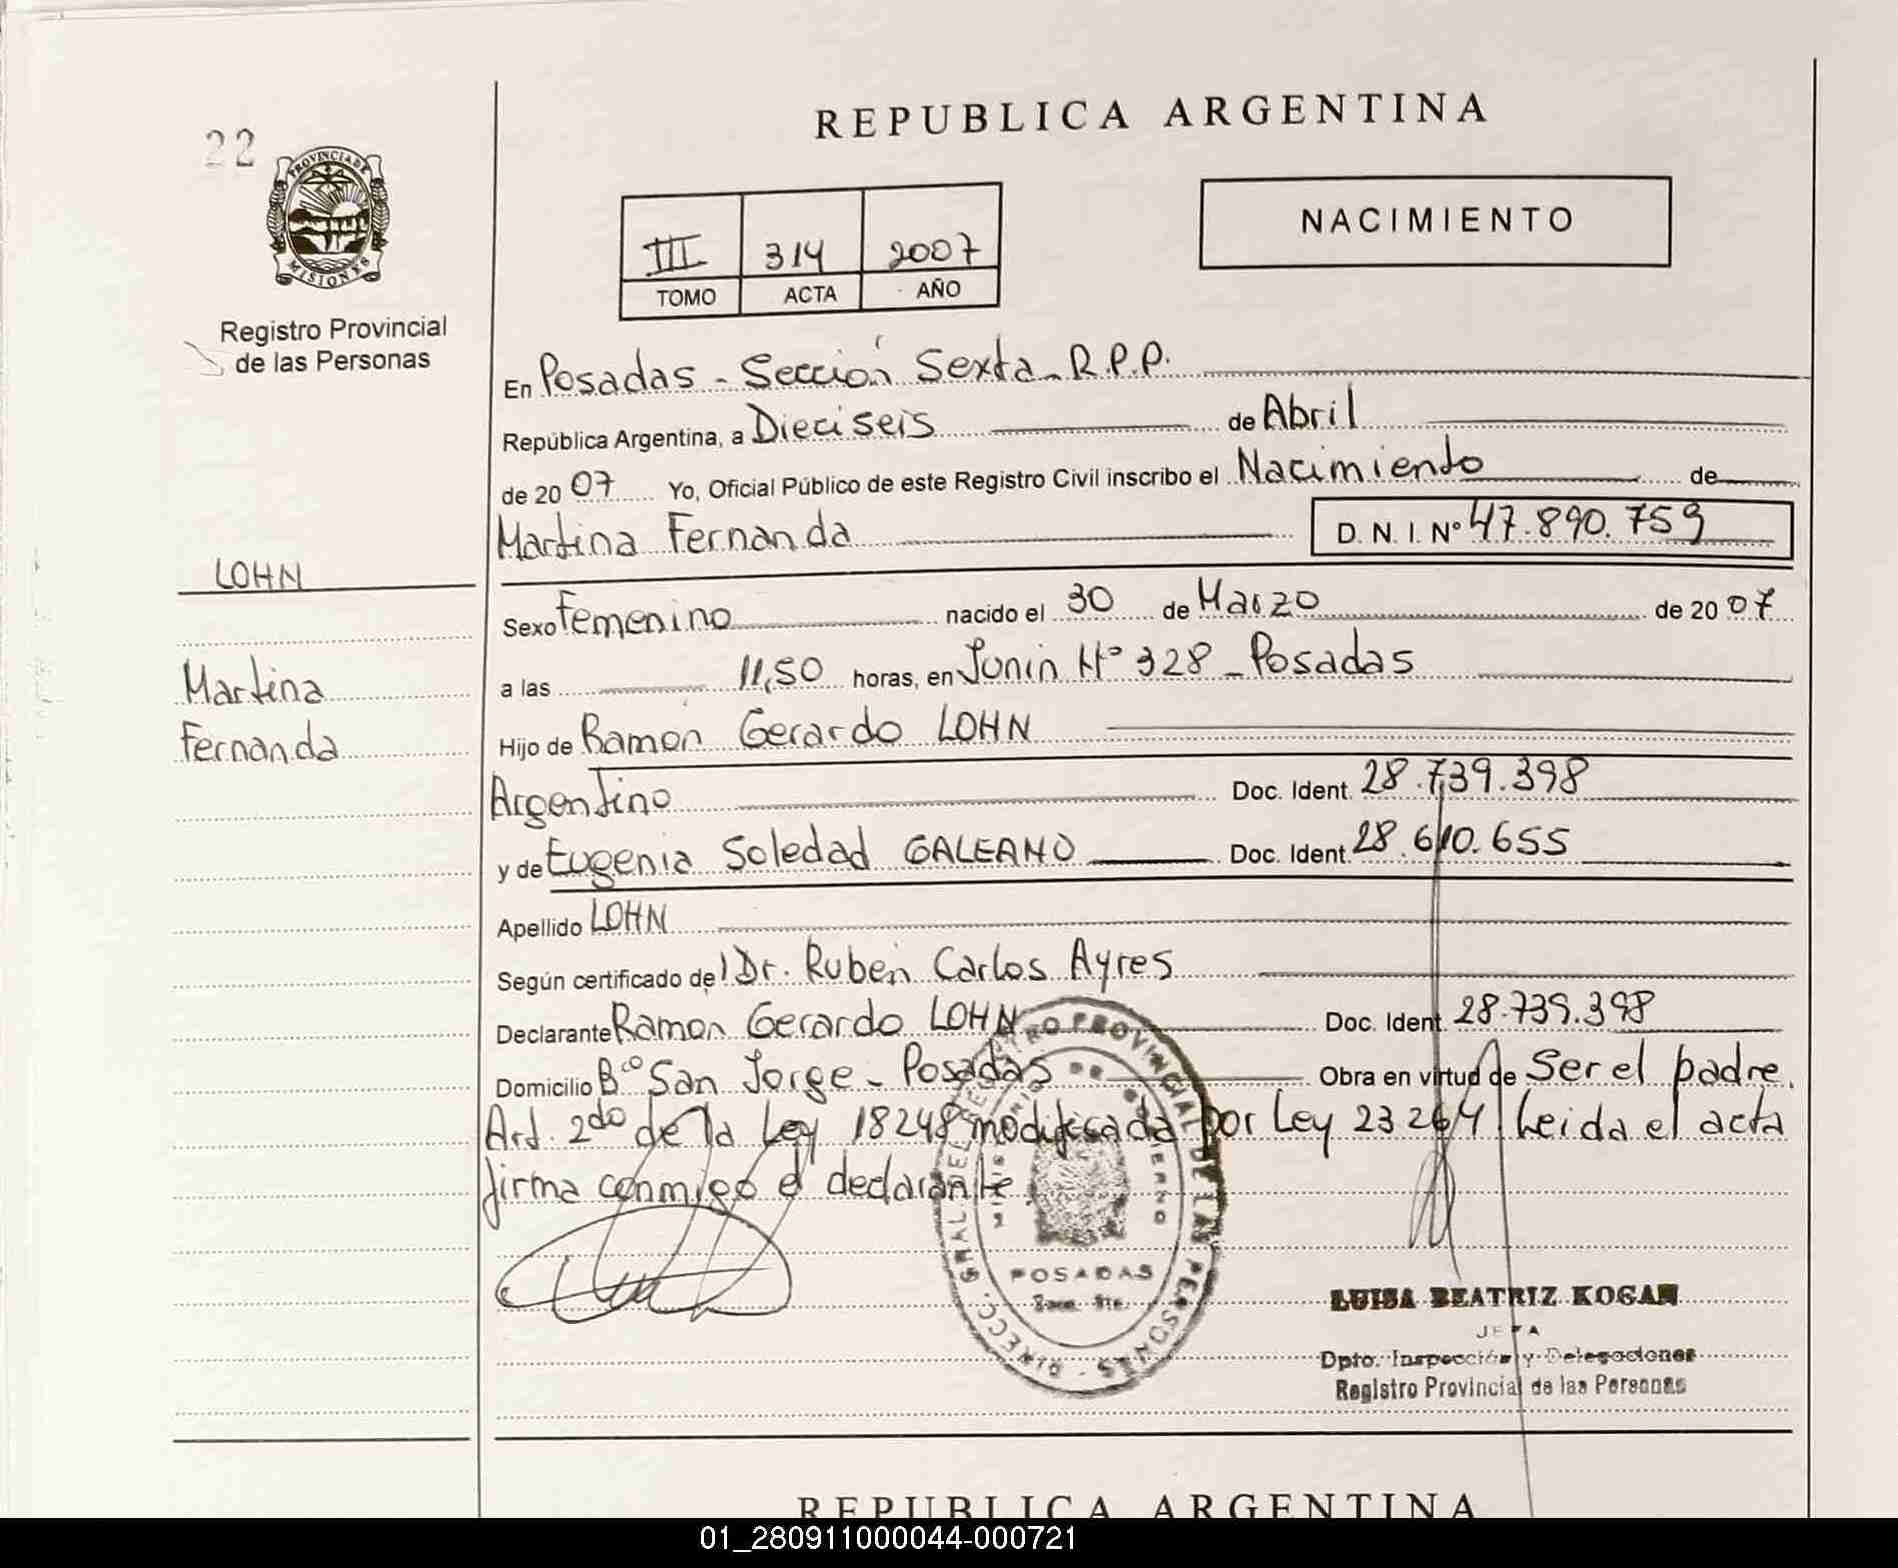 REPUBLICA ARGENTINA
22
PROVINCIA DE
MISIONES
Registro Provincial
de las Personas
III 314 2007
TOMO ACTA AÑO
NACIMIENTO
En Posadas - Sección Sexta - R.P.P.
República Argentina, a Dieciseis de Abril
de 20 07 Yo, Oficial Público de este Registro Civil inscribo el Nacimiento de
Martina Fernanda D. N. I. Nº 47.890.759
LOHN
Sexo Femenino nacido el 30 de Marzo de 20 07
Martina
a las 11,50 horas, en Junin Nº 328 - Posadas
Fernanda
Hijo de Ramón Gerardo LOHN
Argentino Doc. Ident. 28.739.398
y de Eugenia Soledad GALEANO Doc. Ident. 28.610.655
Apellido LOHN
Según certificado de l Dr. Rubén Carlos Ayres
Declarante Ramon Gerardo LOHN Doc. Ident. 28.739.398
Domicilio Bº San Jorge - Posadas Obra en virtud de Ser el padre.
Art. 2do de la Ley 18248 modificada por Ley 23264 Leida el acta
firma conmigo el declarante
DIRECC. GRAL DEL REGISTRO PROVINCIAL DE LAS PERSONAS
MINISTERIO DE GOBIERNO
POSADAS
LUISA BEATRIZ KOGAN
JEFA
Dpto. Inspección y Delegaciones
Registro Provincial de las Personas
REPUBLICA ARGENTINA
01_280911000044-000721